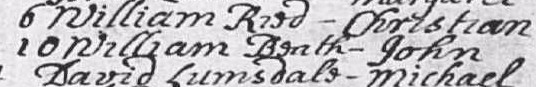 6 William Ried - Christian
10 William Beath - John
David Lumsdale - Michael